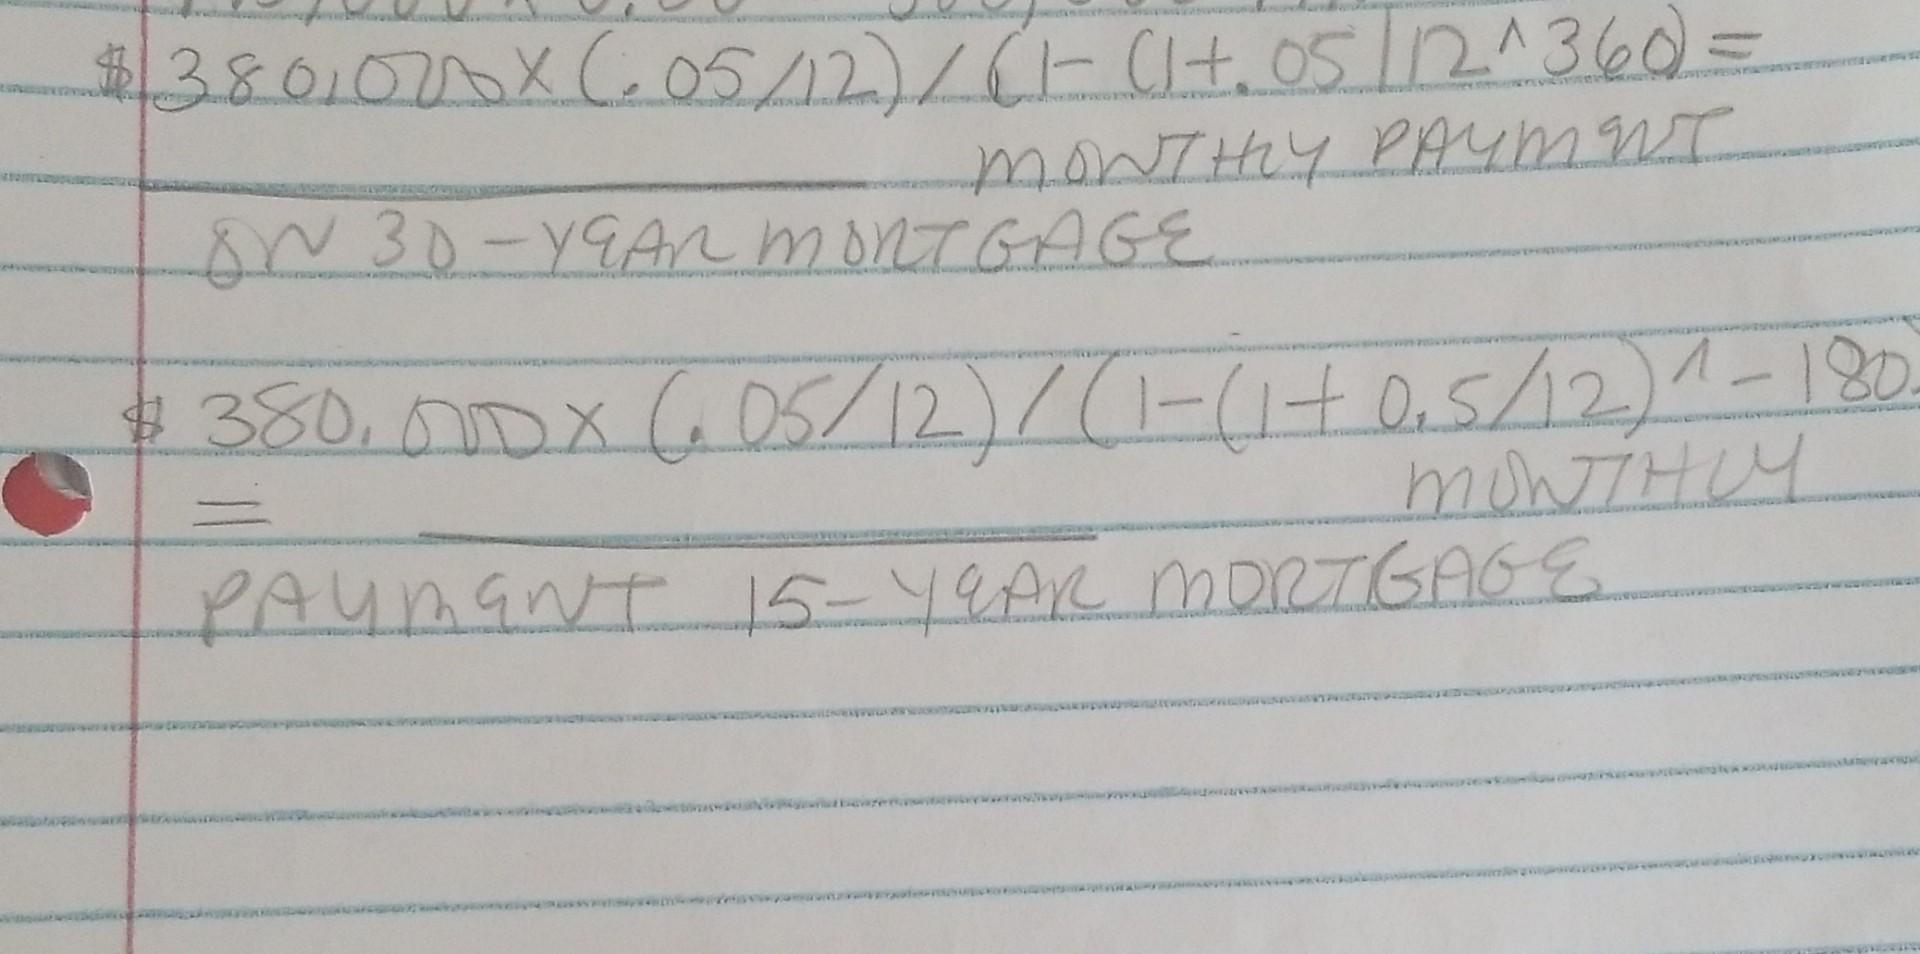 $380,000 X (.05/12) / (1-(1+.05/12^360) =
MONTHLY PAYMENT
ON 30-YEAR MORTGAGE
$380,000 X (.05/12) / (1-(1+0.5/12)^-180
MONTHLY
=
PAYMENT 15-YEAR MORTGAGE